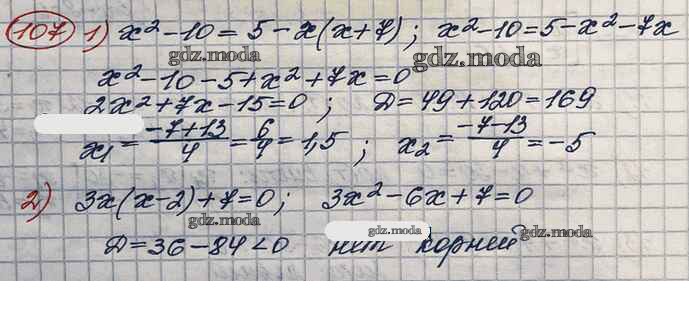 107 1) x² - 10 = 5 - x(x+7); x² - 10 = 5 - x² - 7x
gdz.moda
gdz.moda
x² - 10 - 5 + x² + 7x = 0
2x² + 7x - 15 = 0; D = 49 + 120 = 169
x₁ = (-7+13)/4 = 6/4 = 1,5; x₂ = (-7-13)/4 = -5
gdz.moda
2) 3x(x-2) + 7 = 0; 3x² - 6x + 7 = 0
gdz.moda
gdz.moda
gdz.moda
D = 36 - 84 < 0 нет корней